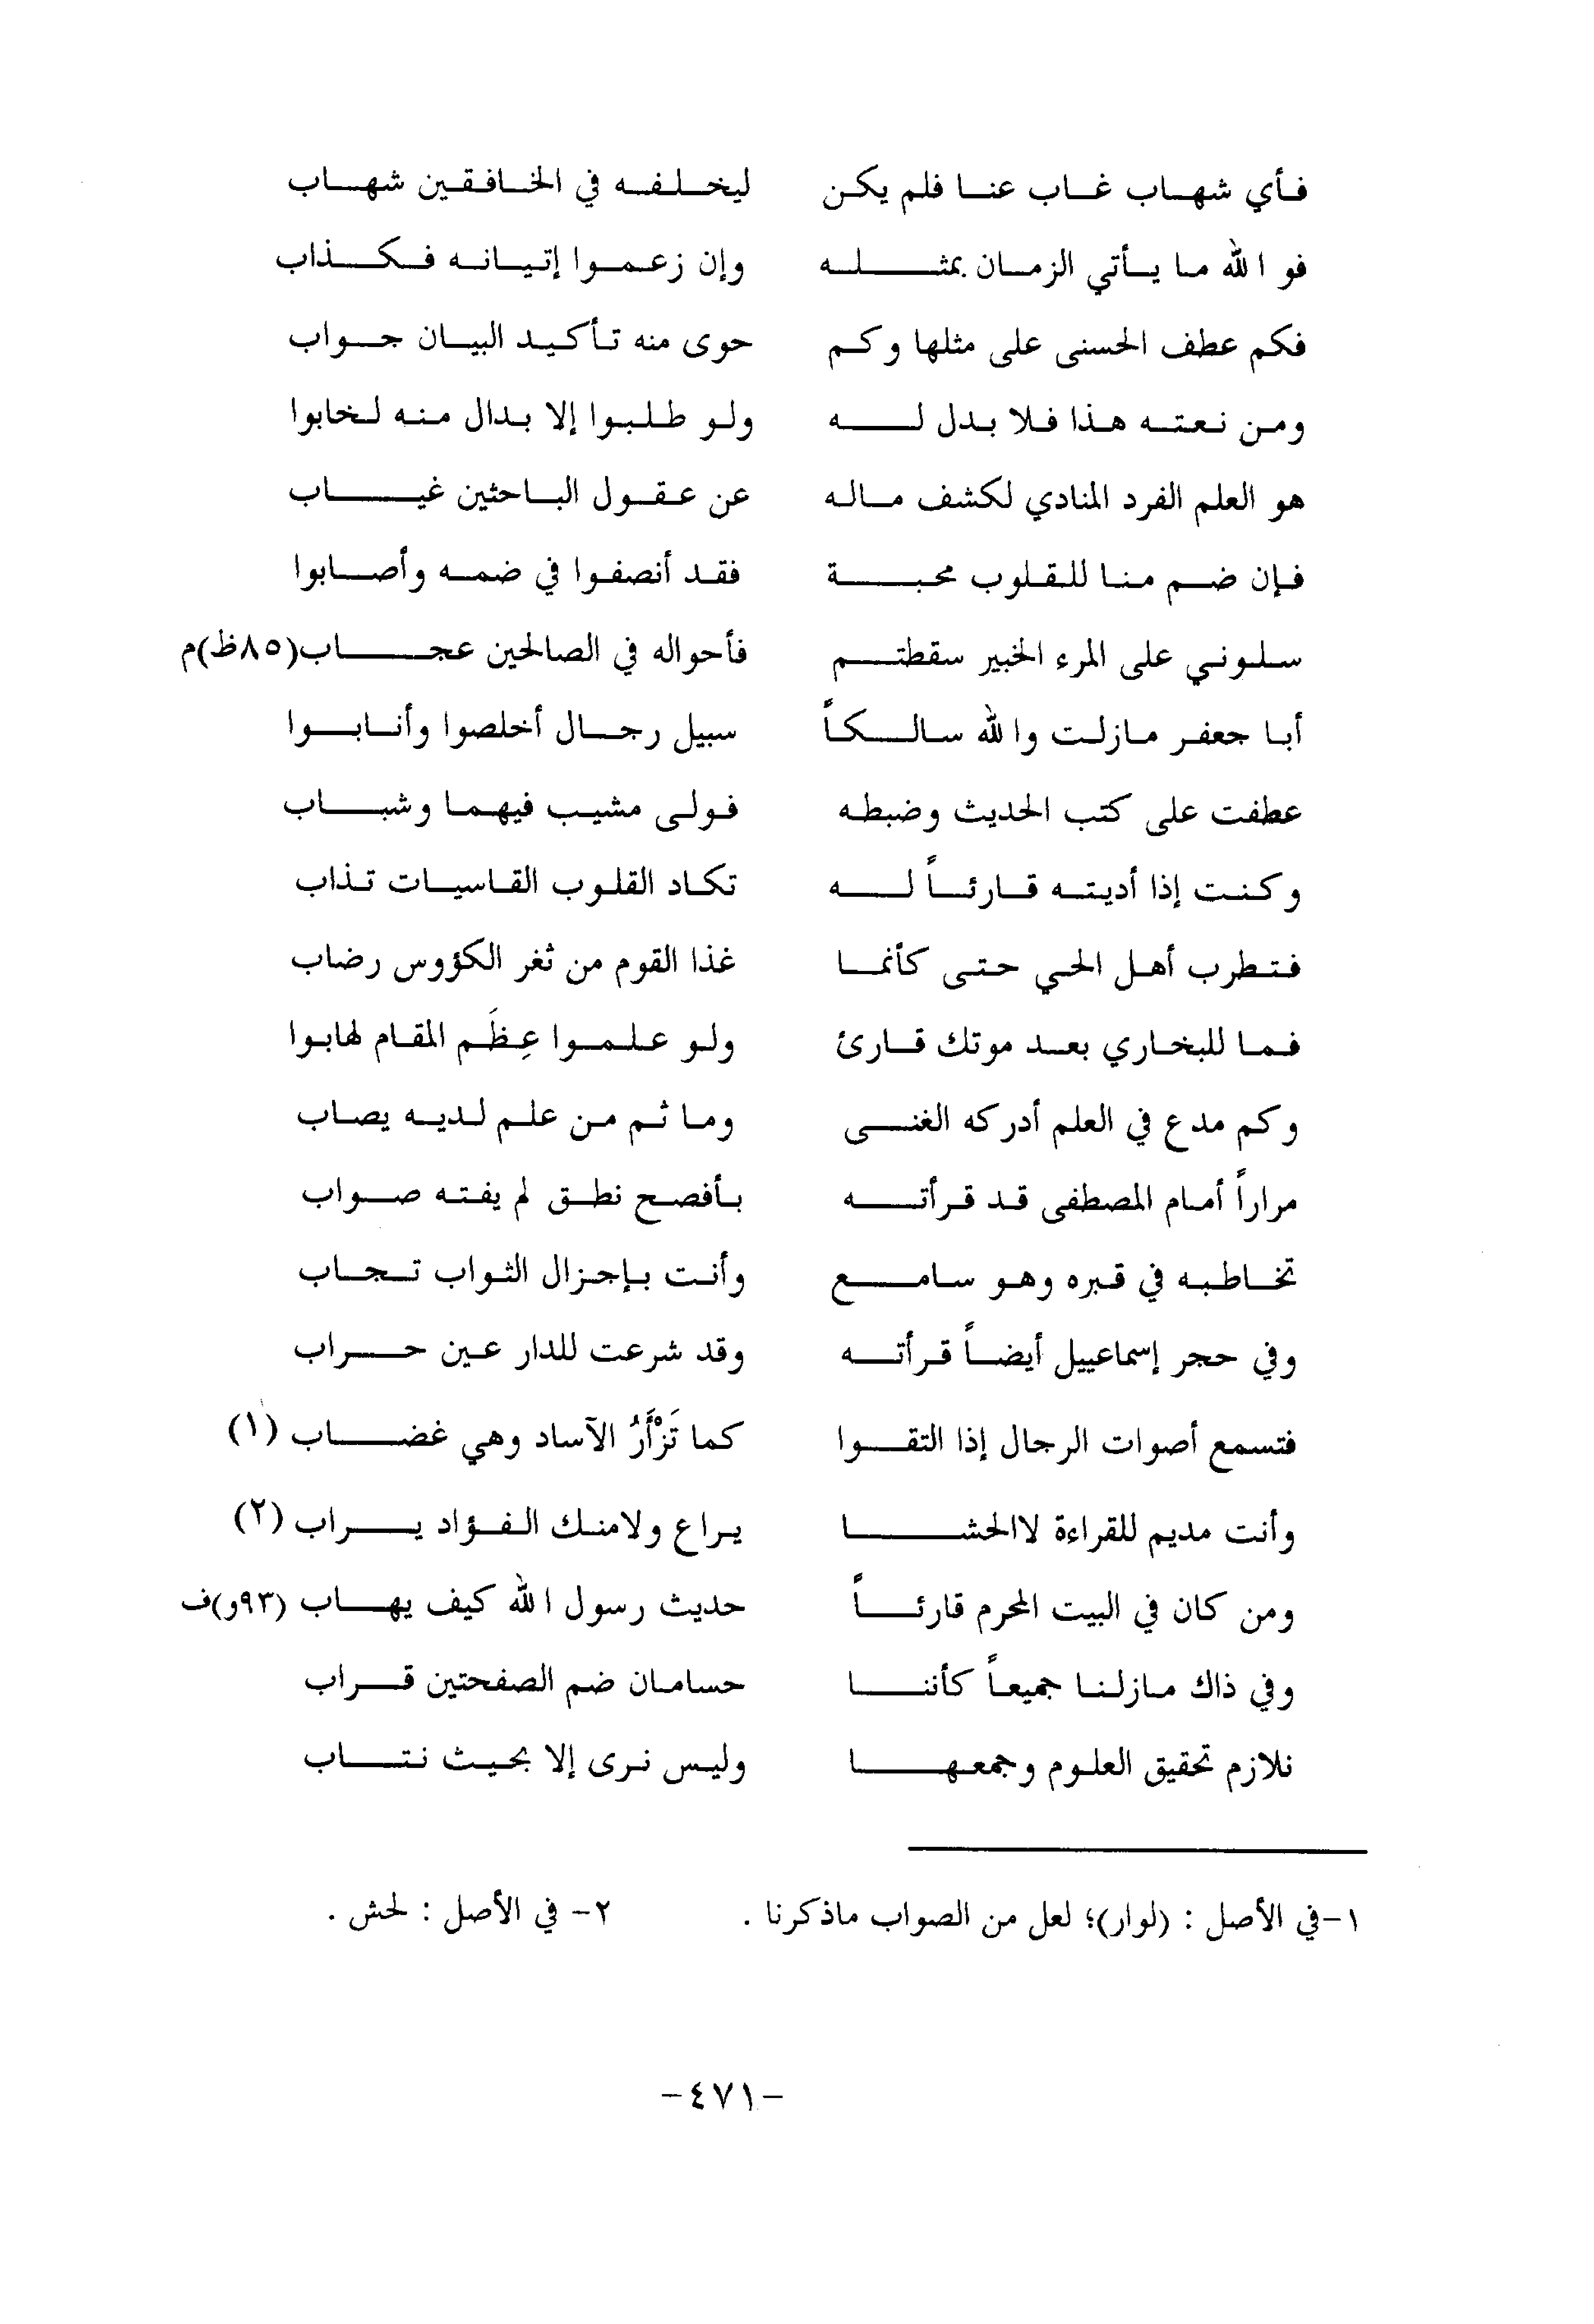 فأي شهاب غاب عنا فلم يكن ليخلفه في الخافقين شهاب
فو الله ما يأتي الزمان بمثله وإن زعموا إتيانه فكذاب
فكم عطف الحسنى على مثلها وكم حوى منه تأكيد البيان جواب
ومن نعته هذا فلا بدل له ولو طلبوا إلا بدال منه لخابوا
هو العلم الفرد المنادي لكشف ماله عن عقول الباحثين غياب
فإن ضم منا للقلوب محبة فقد أنصفوا في ضمه وأصابوا
سلوني على المرء الخبير سقطتم فأحواله في الصالحين عجاب(٨٥ظ)م
أبا جعفر مازلت والله سالكاً سبيل رجال أخلصوا وأنابوا
عطفت على كتب الحديث وضبطه فولى مشيب فيهما وشباب
وكنت إذا أديته قارئاً له تكاد القلوب القاسيات تذاب
فتطرب أهل الحي حتى كأنما غذا القوم من ثغر الكؤوس رضاب
فما للبخاري بعد موتك قارئ ولو علموا عِظَم المقام لهابوا
وكم مدع في العلم أدركه الغنى وما ثم من علم لديه يصاب
مراراً أمام المصطفى قد قرأته بأفصح نطق لم يفته صواب
تخاطبه في قبره وهو سامع وأنت بإجزال الثواب تجاب
وفي حجر إسماعييل أيضاً قرأته وقد شرعت للدار عين حراب
فتسمع أصوات الرجال إذا التقوا كما تَزْأَرُ الآساد وهي غضاب (١)
وأنت مديم للقراءة لاالحشا يراع ولامنك الفؤاد يراب (٢)
ومن كان في البيت المحرم قارئاً حديث رسول الله كيف يهاب (٩٣و)ف
وفي ذاك مازلنا جميعاً كأننا حسامان ضم الصفحتين قراب
نلازم تحقيق العلوم وجمعها وليس نرى إلا بحيث نتاب
١-في الأصل : (لوار)؛ لعل من الصواب ماذكرنا . ٢- في الأصل : لحش .
-٤٧١-